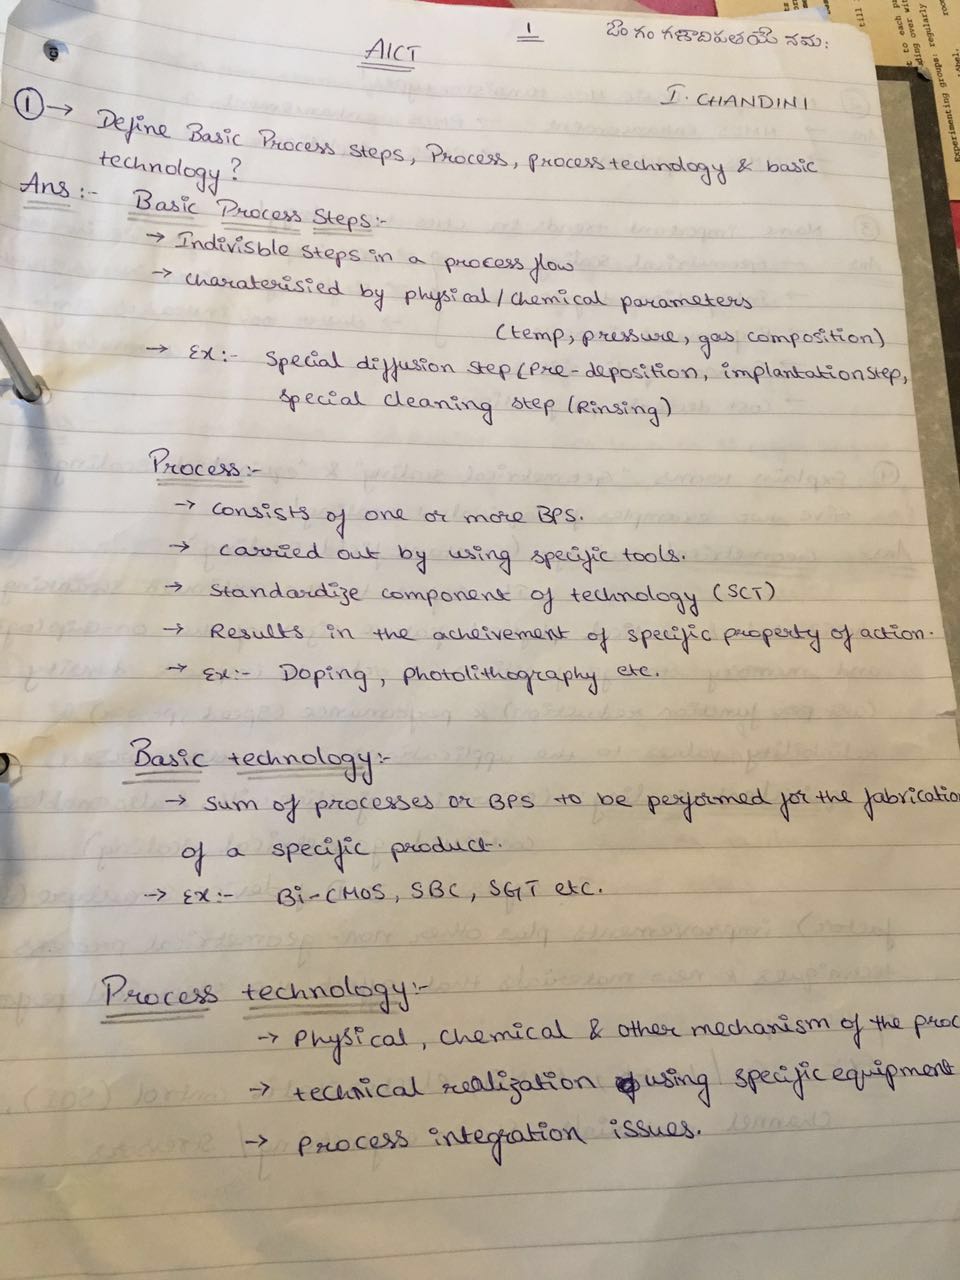 1
ఓం గం గణాధిపతయే నమః
AICT
I. CHANDINI
① → Define Basic Process steps, Process, process technology & basic
technology?
Ans :- Basic Process Steps:-
→ Indivisble steps in a process flow
→ charaterisied by physical/chemical parameters
(temp, pressure, gas composition)
→ Ex:- Special diffusion step (Pre-deposition, implantation step,
special cleaning step (Rinsing)
Process:-
→ consists of one or more BPS.
→ carried out by using specific tools.
→ standardize component of technology (SCT)
→ Results in the acheivement of specific property of action.
→ Ex:- Doping, photolithography etc.
Basic technology:-
→ sum of processes or BPS to be performed for the fabricatio
of a specific product.
→ Ex:- Bi-CMOS, SBC, SGT etc.
Process technology:-
→ Physical, chemical & other mechanism of the proc
→ technical realization using specific equipment
→ process integration issues.
Experimenting groups: regularly